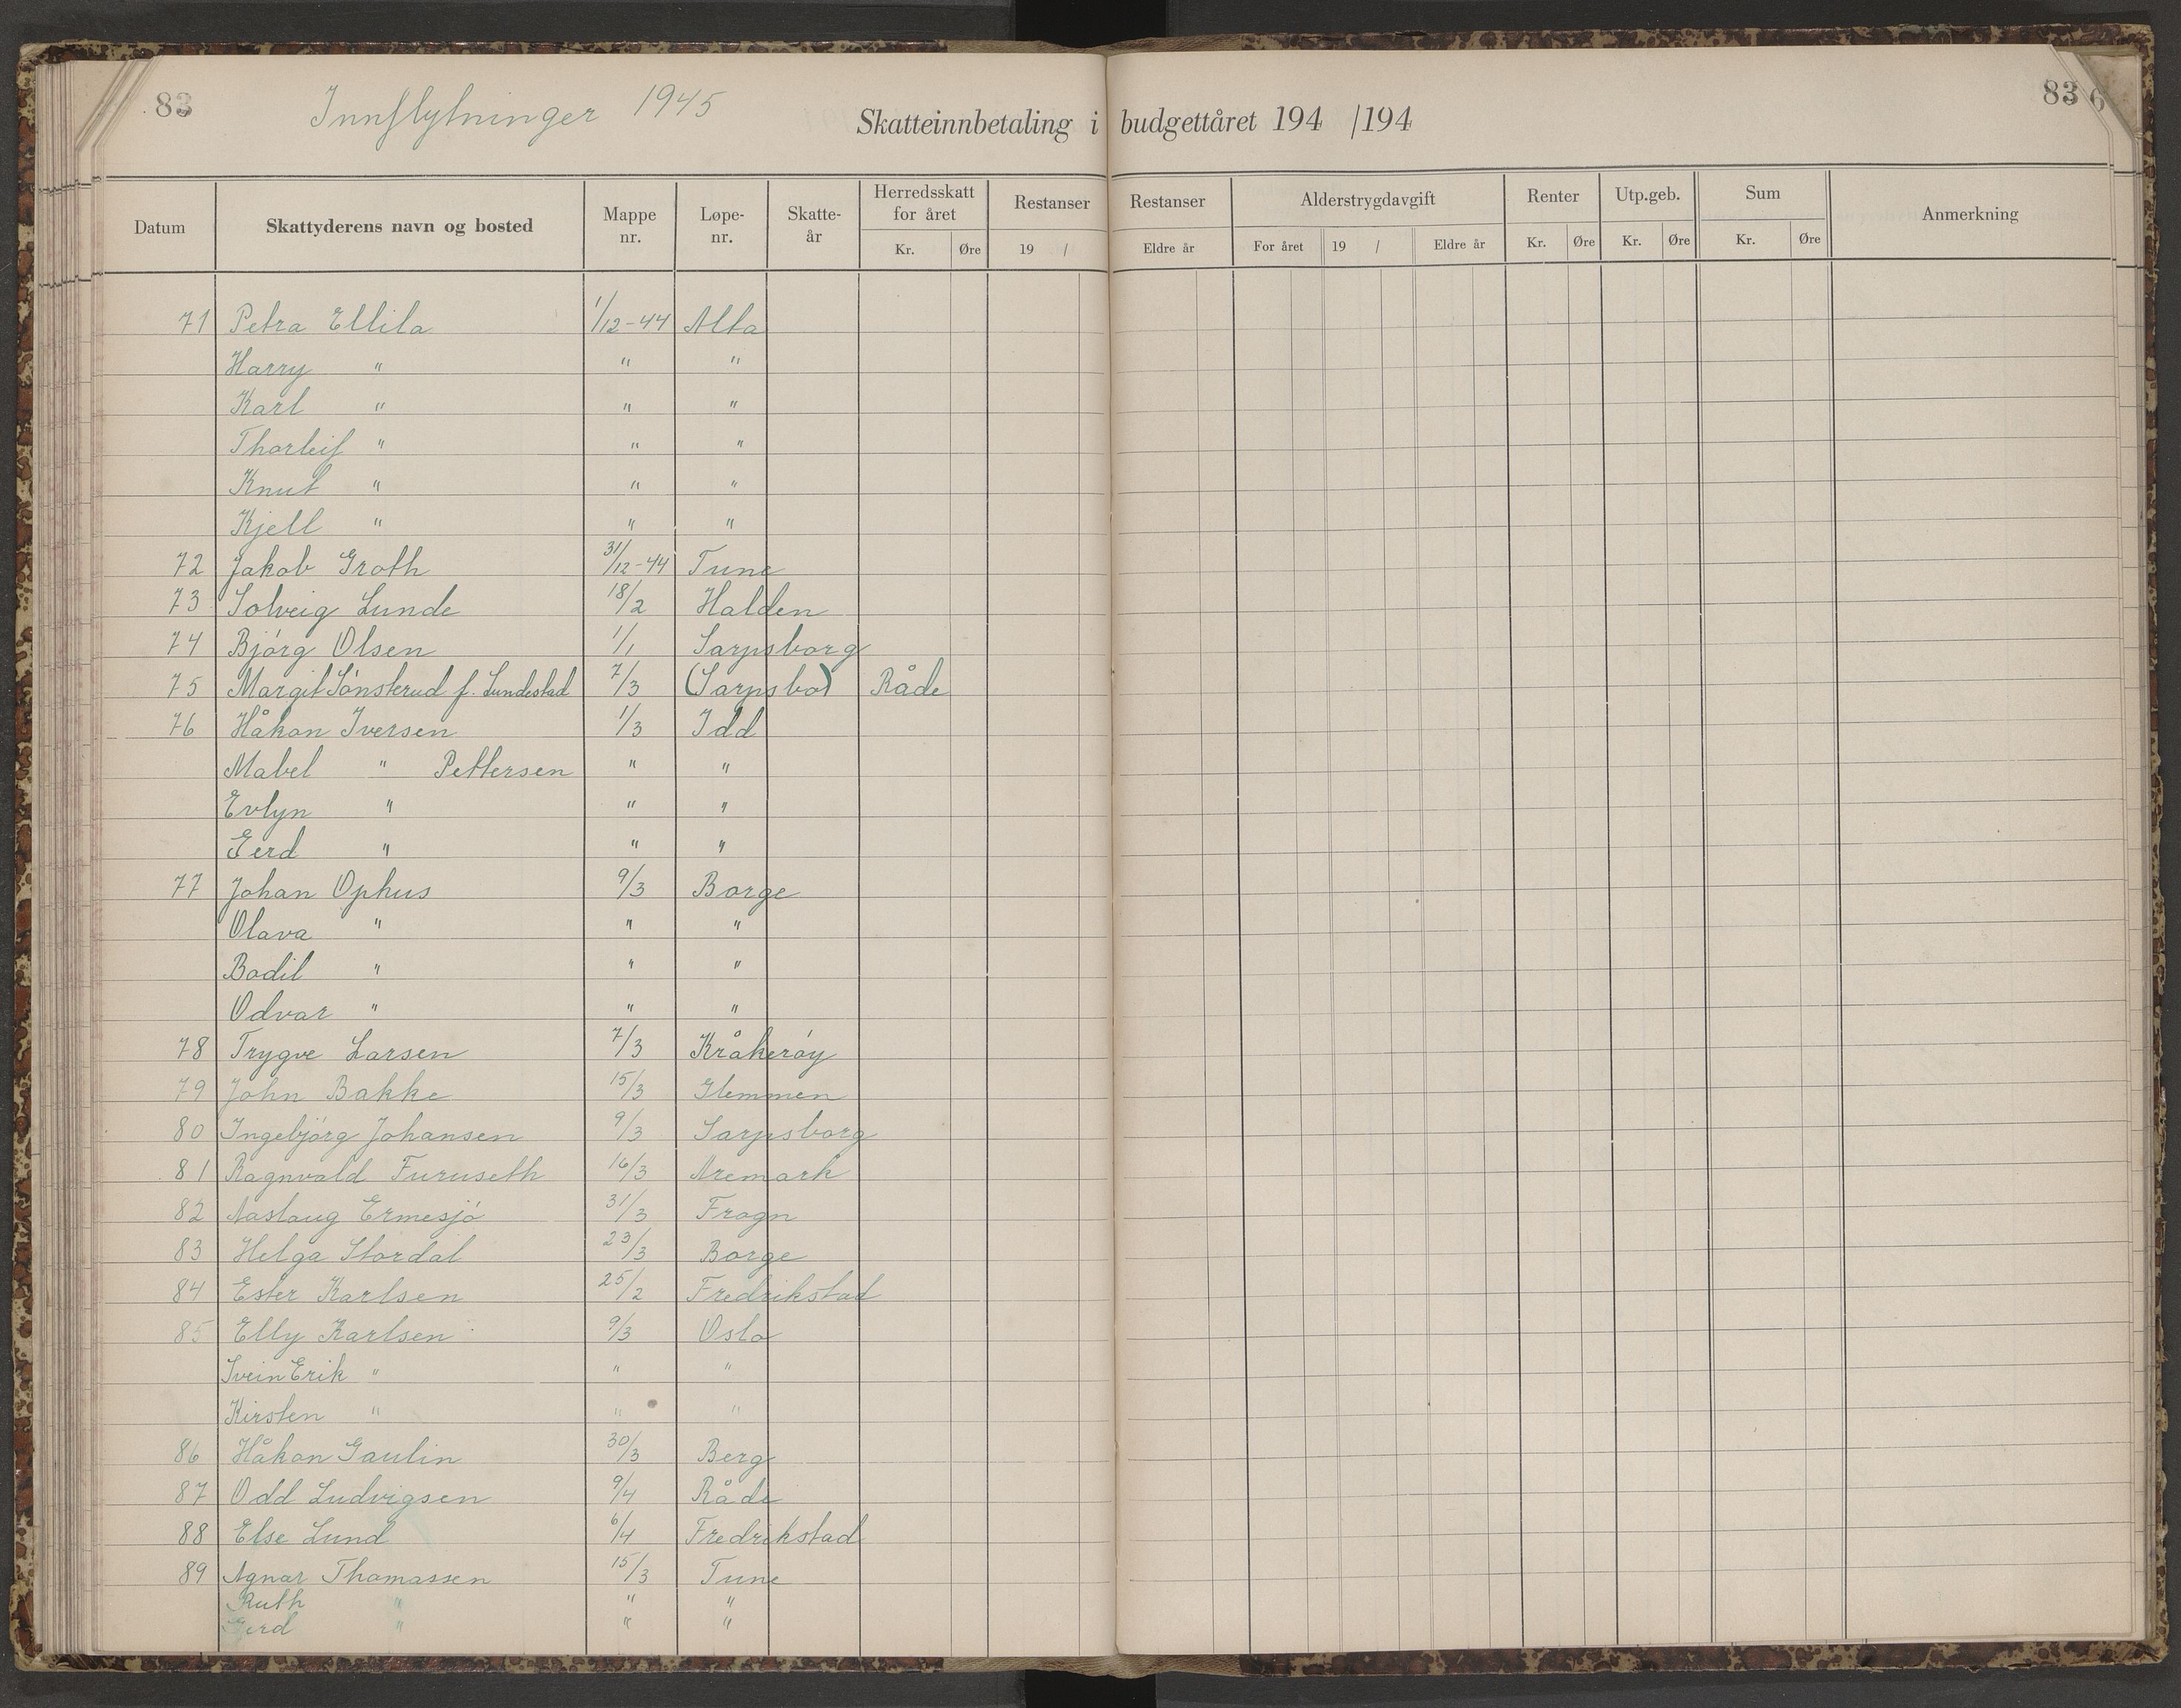 83 Innflytninger 1945 83 6
Skatteinnbetaling i budgettåret 194 /194
Datum Skattyderens navn og bosted Mappe nr. Løpe-nr. Skatte-år Herredsskatt for året Restanser Restanser Alderstrygdavgift Renter Utp.geb. Sum Anmerkning
Kr. Øre 19 / Eldre år For året 19 / Eldre år Kr. Øre Kr. Øre Kr. Øre
71 Petra Ellila 1/12-44 Alta
Harry " " "
Karl " " "
Thorleif " " "
Knut " " "
Kjell " " "
72 Jakob Groth 31/12-44 Tune
73 Solveig Lunde 18/2 Halden
74 Bjørg Olsen 1/1 Sarpsborg
75 Margit Sønsterud f. Lundestad 7/3 (Sarpsbo) Råde
76 Håkon Iversen 1/3 Idd
Mabel " Pettersen " "
Evlyn " " "
Gerd " " "
77 Johan Ophus 9/3 Borge
Olava " " "
Bodil " " "
Odvar " " "
78 Trygve Larsen 7/3 Kråkerøy
79 John Bakke 15/3 Glemmen
80 Ingebjørg Johansen 9/3 Sarpsborg
81 Ragnvald Furuseth 16/3 Aremark
82 Aaslaug Ermesjø 31/3 Frogn
83 Helga Stordal 23/3 Borge
84 Ester Karlsen 25/2 Fredrikstad
85 Elly Karlsen 9/3 Oslo
Svein Erik " " "
Kirsten " " "
86 Håkon Gaulin 30/3 Berg
87 Odd Ludvigsen 9/4 Råde
88 Else Lund 6/4 Fredrikstad
89 Agnar Thomassen 15/3 Tune
Ruth " " "
Gerd " " "